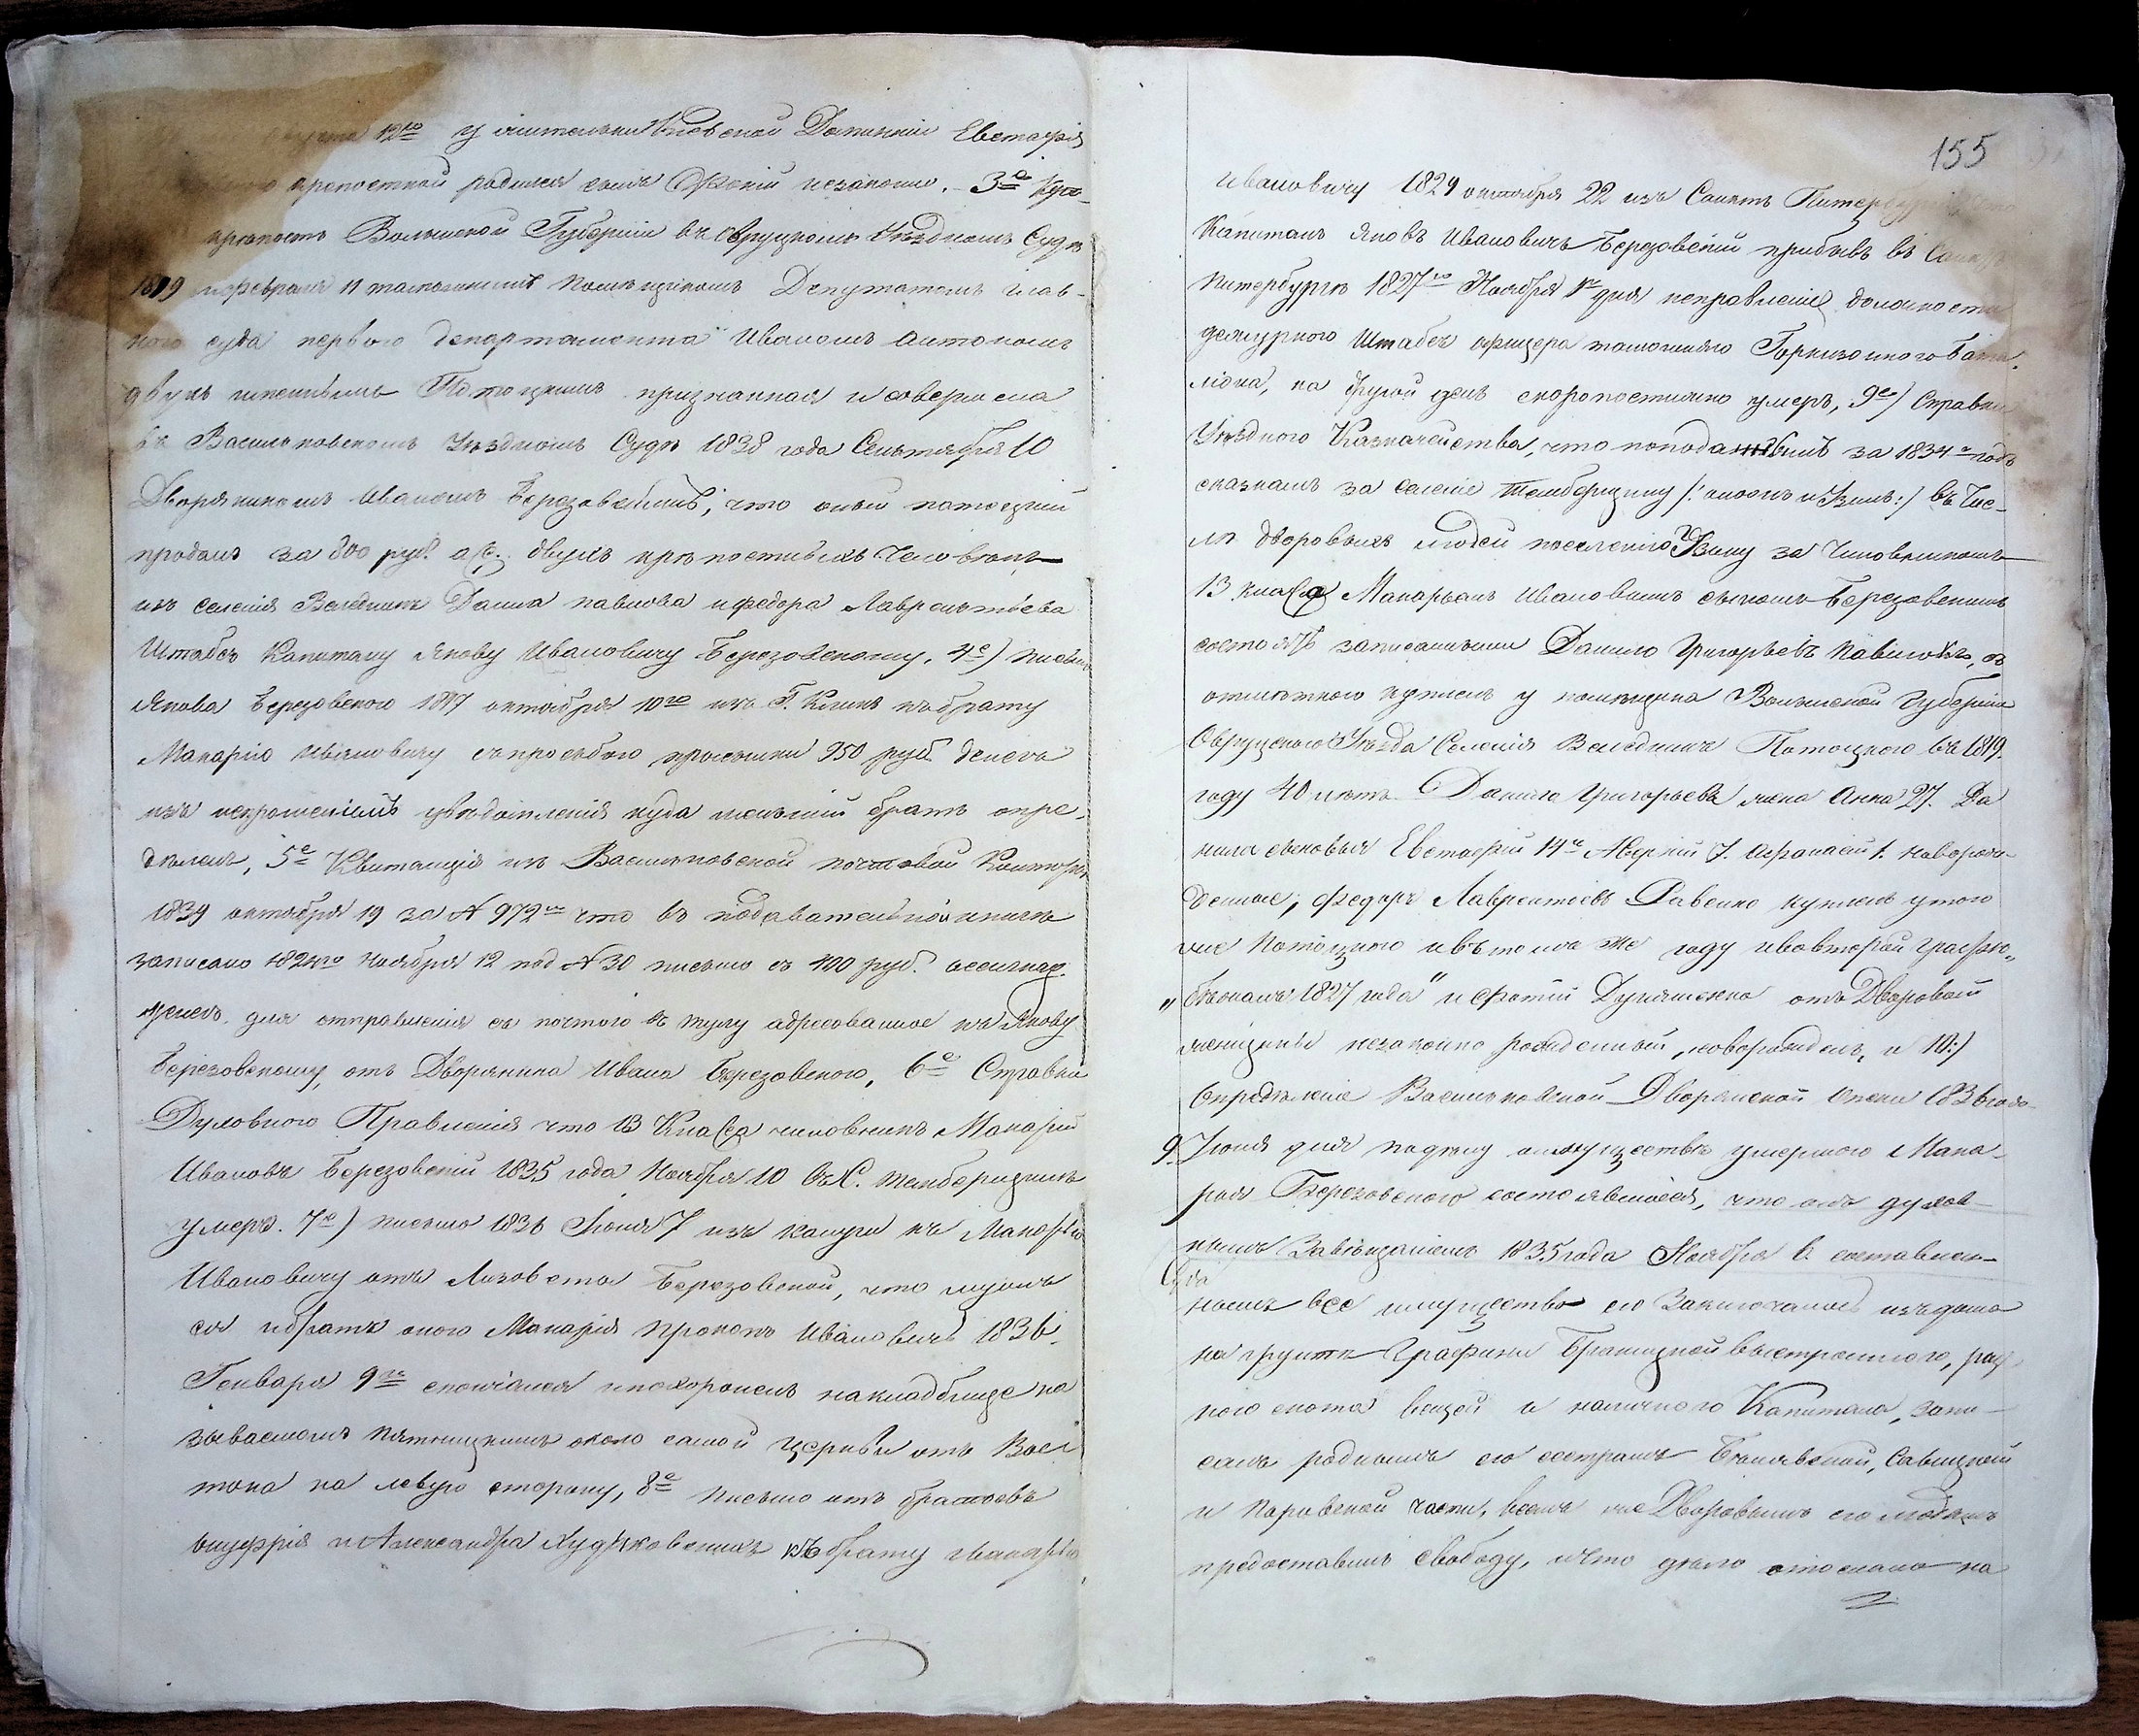 12го у жительки Киевской Домникии Евстафiя
крепостной родился сынъ Фотiй незаконно. 3е Купчая
крепость Волынской Губернiи въ Овруцкомъ Уѣздномъ Судѣ
1819 февраля 11 тамошнимъ помѣщикомъ Депутатомъ глав-
ного суда первого департамента Иваномъ Антономъ
двухъ именнымъ Потоцкимъ признанная и совершена
въ Васильковскомъ Уѣздномъ Судѣ 1838 года Сентября 10
Дворяниномъ Иваномъ Березовскимъ, что оный потоцкий
продалъ за 800 руб. асс. двухъ крѣпостныхъ человѣкъ
изъ селенiя Веледникъ Данила павлова и федора Лаврентьева
Штабсъ Капитану Якову Ивановичу Березовскому, 4е) письмо
Якова Березовского октября 10го изъ Г. къ брату
Макарiю Ивановичу съ просьбою присылки 950 руб. денегъ
изъ испрошенiемъ увѣдомленiя куда меньшiй братъ опре-
дѣленъ, 5е Квитанцiя изъ Васильковской почтовой Конторы
1839 октября 19 за № 972м что въ подавательной книгѣ
записано ноября 12 под № 30 письмо съ 400 руб. ассигнац.
денегъ для отправленiя съ почтою въ Тулу адресованное къ Якову
Березовскому, отъ Дворянина Ивана Березовского, 6е Справки
Духовного Правленiя что 13 Класса чиновникъ Макарiй
Ивановъ Березовскiй 1835 года Ноября 10 въ С. Темберщинѣ
умеръ. 7е) письмо 1836 Iюня 7 изъ Калуги къ Макарью
Ивановичу отъ Лизовета Березовской, что мужъ
ея и братъ оного Макарiя Прокопъ Ивановичъ 1836
Генваря 9го скончался и похороненъ на кладбище на
зываемомъ пятницкимъ около самой церкви отъ Вос-
тока на левую сторону, 8е письмо отъ братьевъ
Онуфрiя и Александра Худяковскихъ къ брату Макарью
155
Ивановичу 1829 октября 22 изъ Санктъ Питербурга
Капитанъ Яковъ Ивановичъ Березовскiй прибывъ въ Санктъ
Питербургъ 1827го Ноября 1го дня исправленiе должности
дежурного Штабсъ офицера тамошняго Горнизонного Бата-
лiона, на другой день скоропостижно умеръ, 9е) Справки
Уѣздного Казначейства, что по поданнымъ за 1834й годъ
сказкамъ за селенiе Темберщину /: онъ и Узинъ :/ въ чис-
лѣ дворовыхъ людей поселенiю Узину за Чиновникомъ
13 класса Макарьемъ Ивановымъ сыномъ Березовскимъ
состоятъ записанными Данило Григорьевъ Павловъ, съ
отмѣткою купленъ у помѣщика Волынской Губернiи
Овруцкого Уѣзда Селенiя Веледникъ Потоцкого въ 1819.
году 40 лѣтъ. Данила Григорьева жена Анна 27. Да
нила сыновья Евстафiй 14ть Аверкiй 7. Афанасiй 1. новорож-
денные; федоръ Лаврентiевъ Равенко купленъ у того
же Потоцкого и въ томъ же году и во второй графѣ
„бѣжалъ 1827 года" и Фотiй отъ Дворовой
женщины незаконно рожденный, новорожденъ, и 10:)
Опредѣленiе Васильковской Дворянской Опеки 1836 года
9 Iюня дня по дѣлу о имуществѣ умершого Мака-
рья Березовского состоявшееся, что онъ духов-
нымъ Завѣщанiемъ 1835 года Ноября 6. составлен-
нымъ все имущество его Заключалось изъ дома
на грунтѣ Графини Браницкой выстроенного, раз-
ного скота вещей и наличного Капитала, запи-
салъ роднымъ его сестрамъ Савицкой
и части, всемъ же Дворовымъ его людямъ
предоставилъ свободу, и что дѣло отослано на